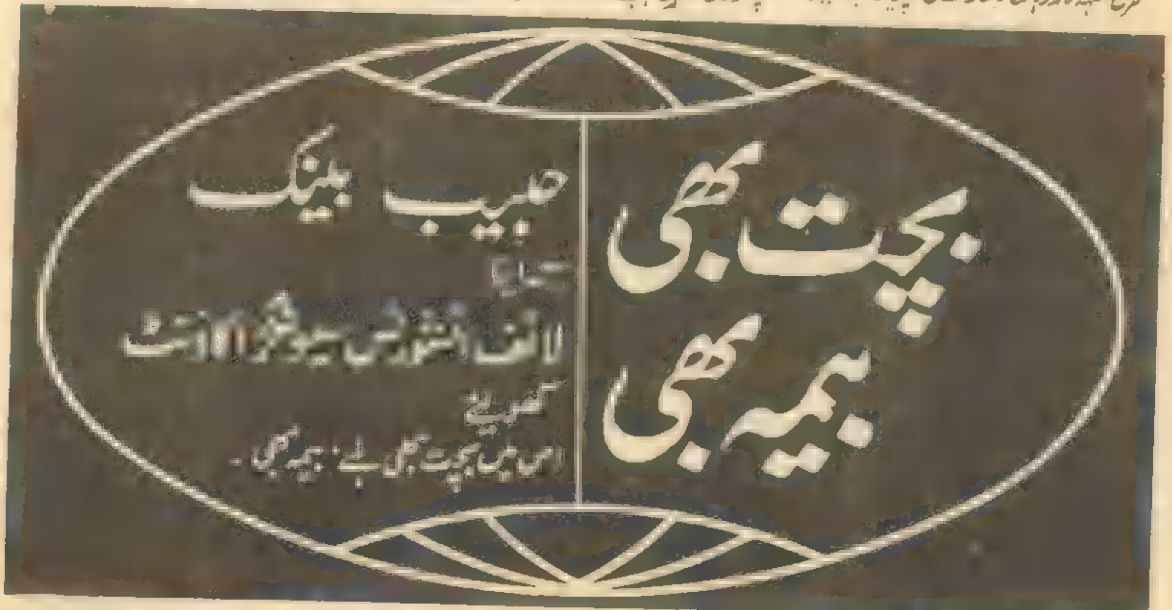 بچت بھی
بیمہ بھی
حبیب بینک
میں
لائف انشورنس سیونگز اکاؤنٹ
کھولیئے
اس میں بچت بھی ہے، بیمہ بھی۔